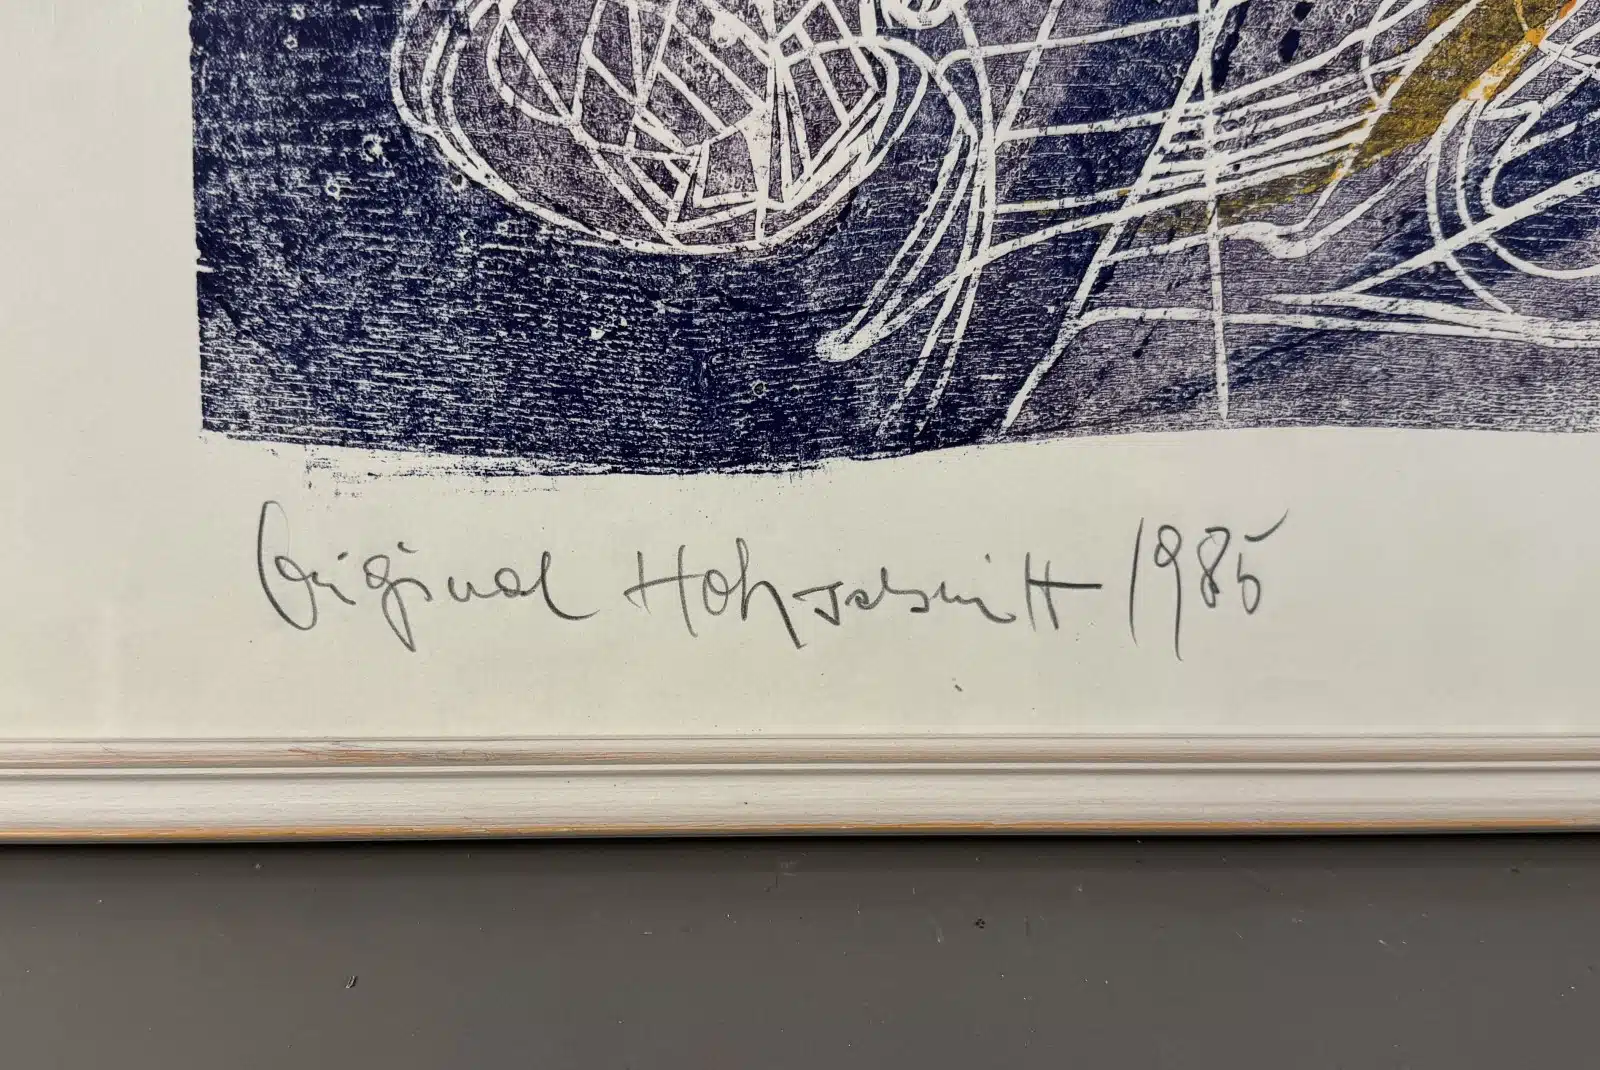 Original Holzschnitt 1985